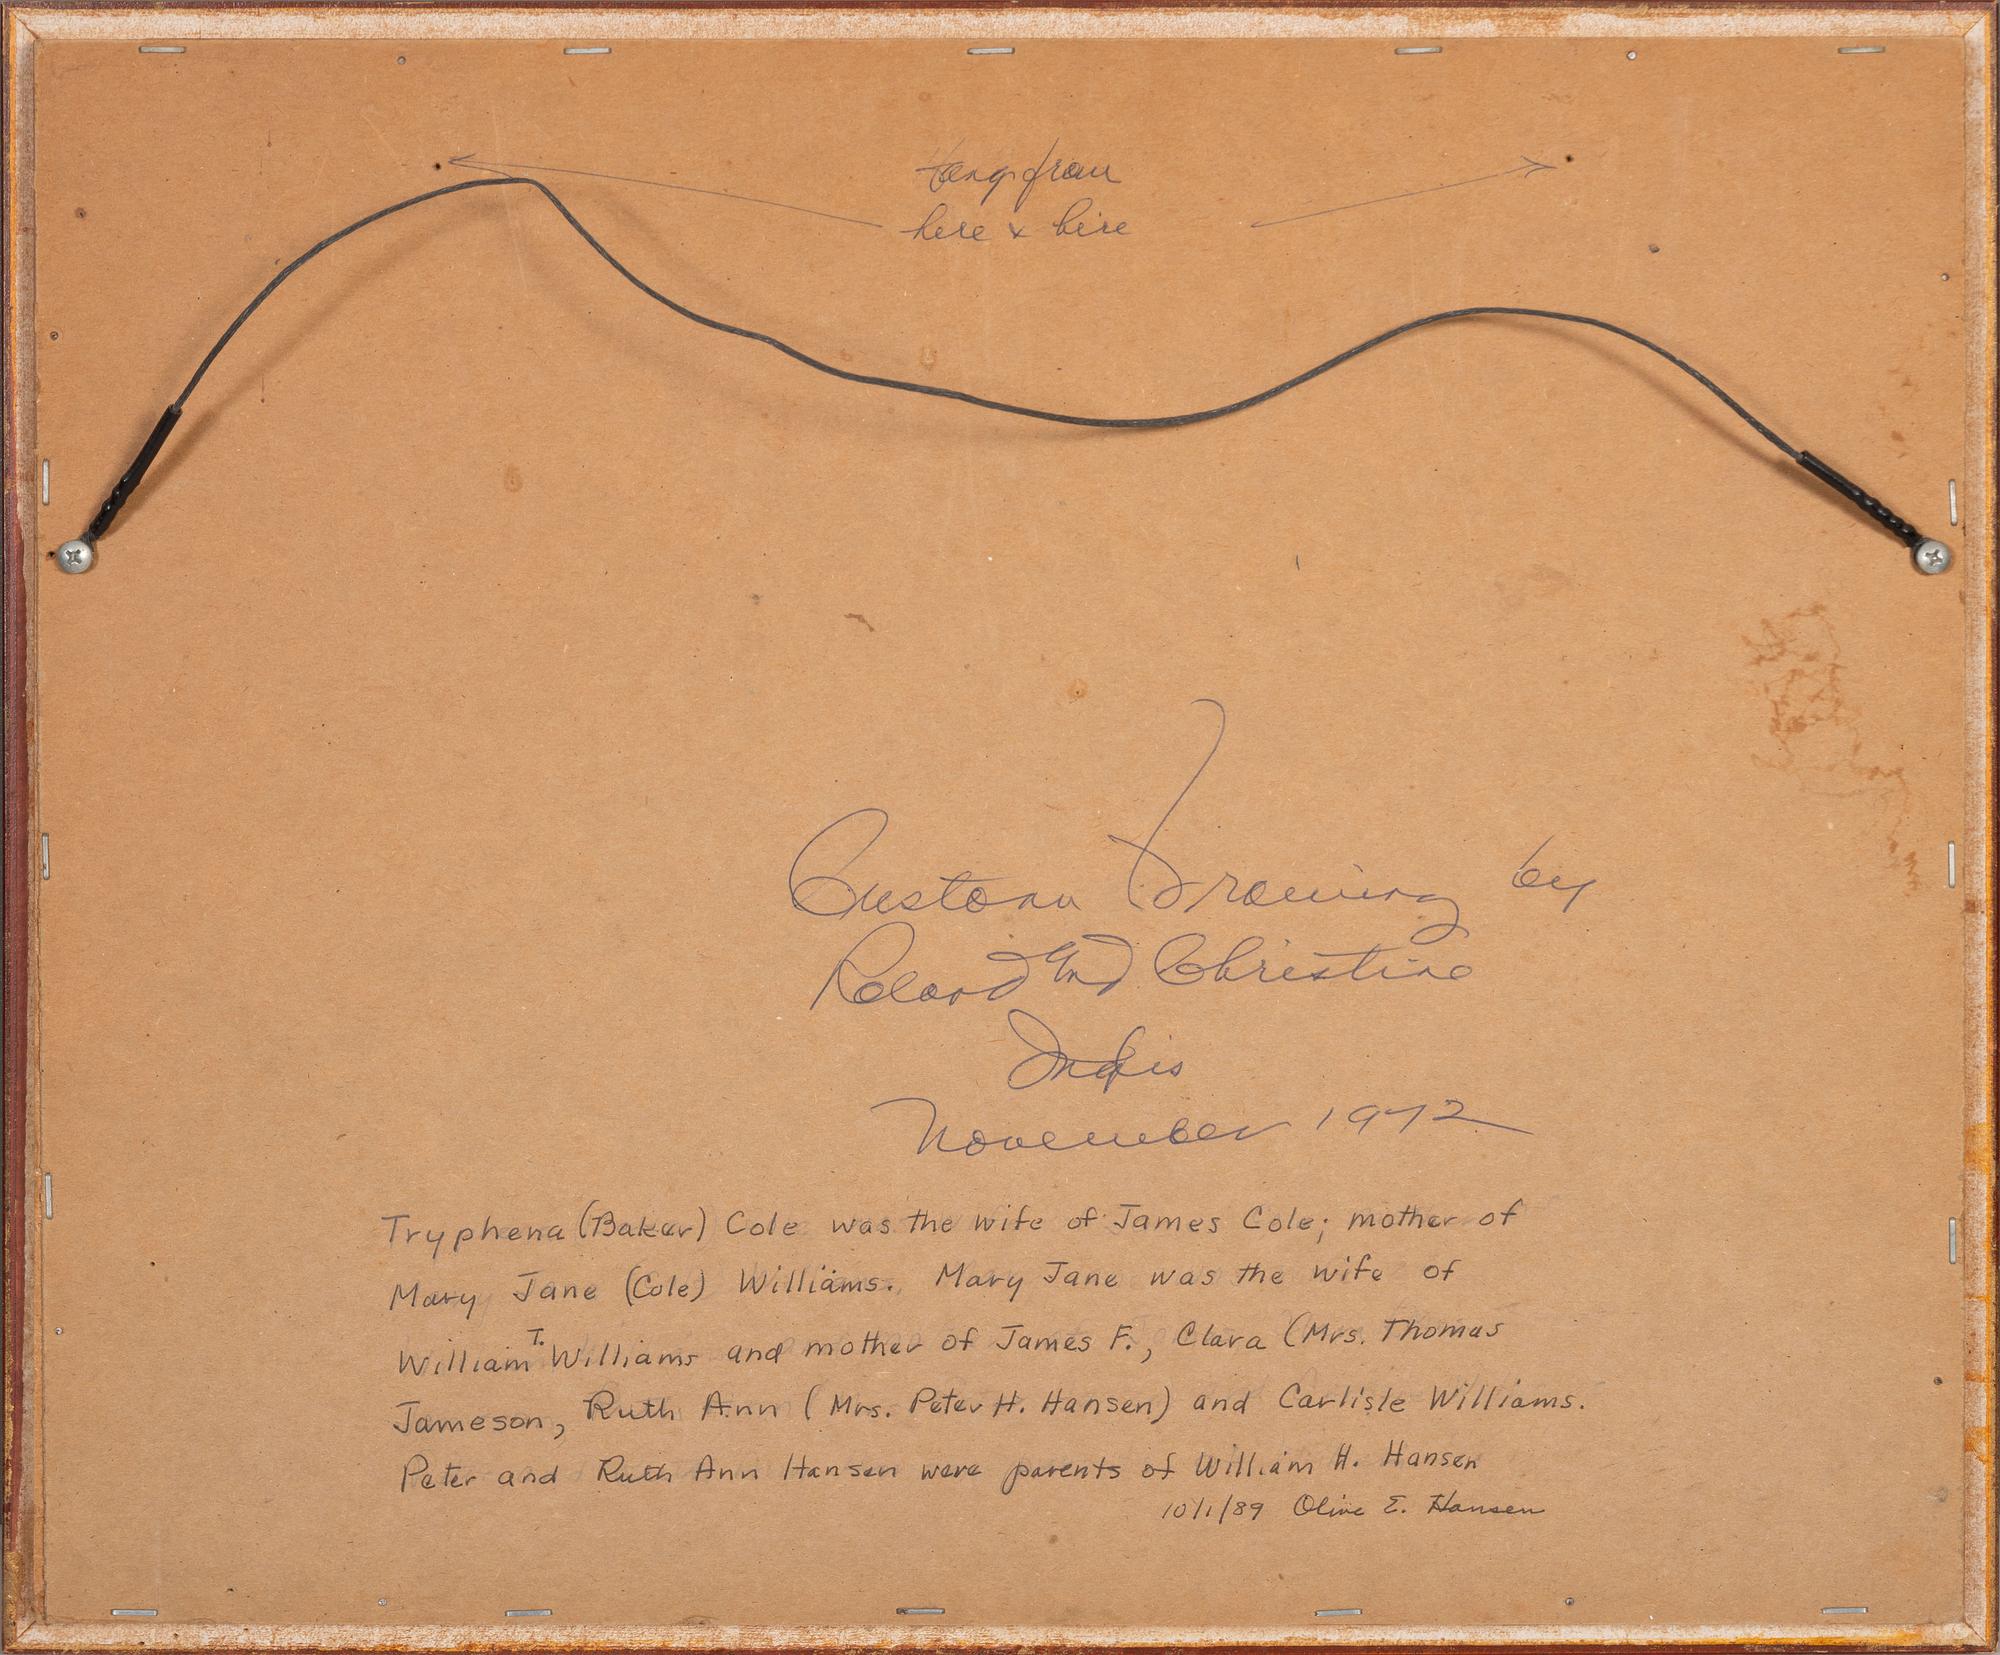 Hang from
here & here
Custom Framing by
Roland and Christine
November 1972
Tryphena (Baker) Cole was the wife of James Cole; mother of
Mary Jane (Cole) Williams. Mary Jane was the wife of
William T. Williams and mother of James F., Clara (Mrs. Thomas
Jameson, Ruth Ann (Mrs. Peter H. Hansen) and Carlisle Williams.
Peter and Ruth Ann Hansen were parents of William H. Hansen
10/1/89 Olive E. Hansen